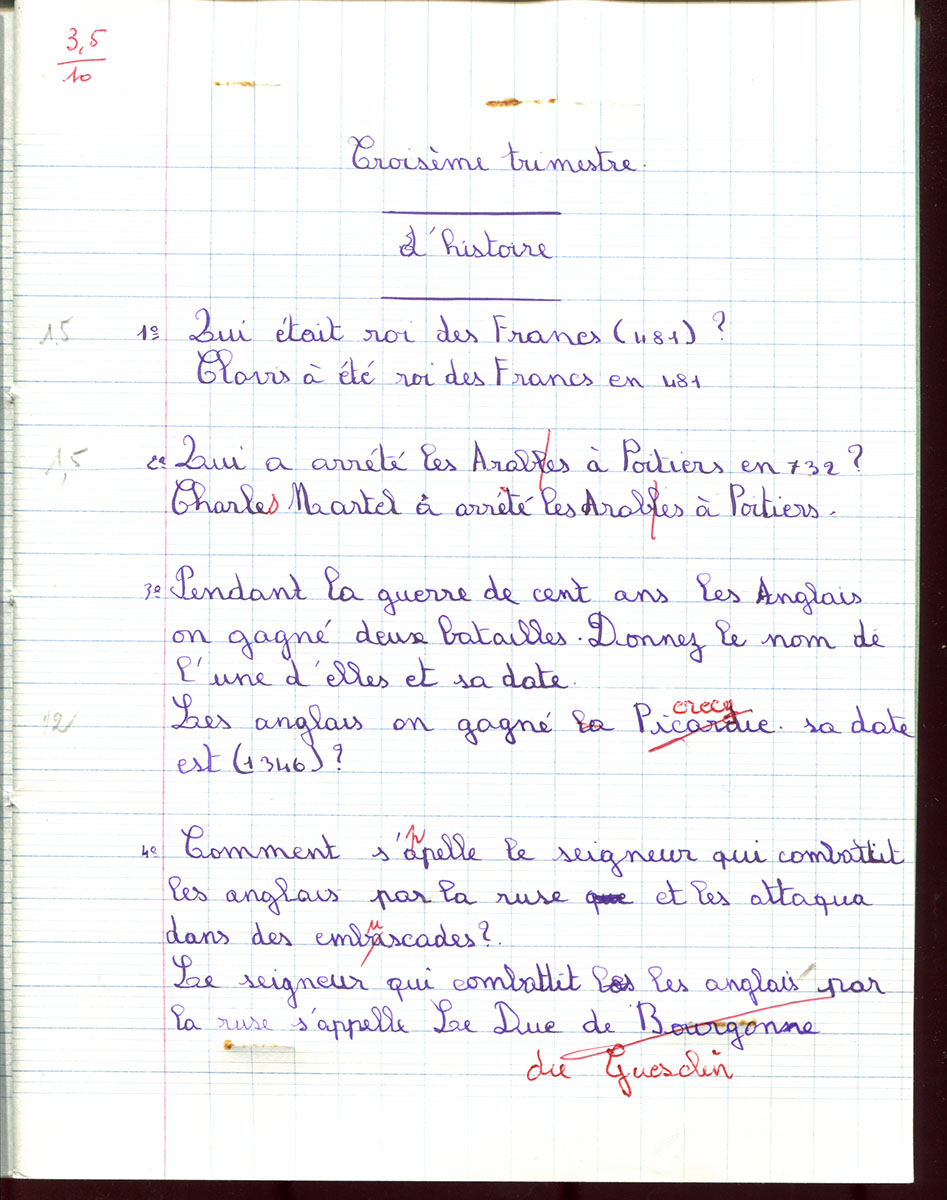 3,5
10
Troisème trimestre.
d'histoire
1,5
1º Qui était roi des Francs (481) ?
Clovis à été roi des Francs en 481
1,5
2º Qui a arrété les Arabes à Poitiers en 732 ?
Charles Martel à arrêté les Arabes à Poitiers.
3º Pendant la guerre de cent ans les Anglais
on gagné deux batailles. Donnez le nom de
l'une d'elles et sa date.
crecy
1/2
Les anglais on gagné la Picardie. sa date
est (1346) ?
p
4º Comment s'apelle le seigneur qui combattit
les anglais par la ruse que et les attaqua
u
dans des embascades ?
Le seigneur qui combattit les les anglais par
la ruse s'appelle Le Duc de Bourgonne
du Guesclin